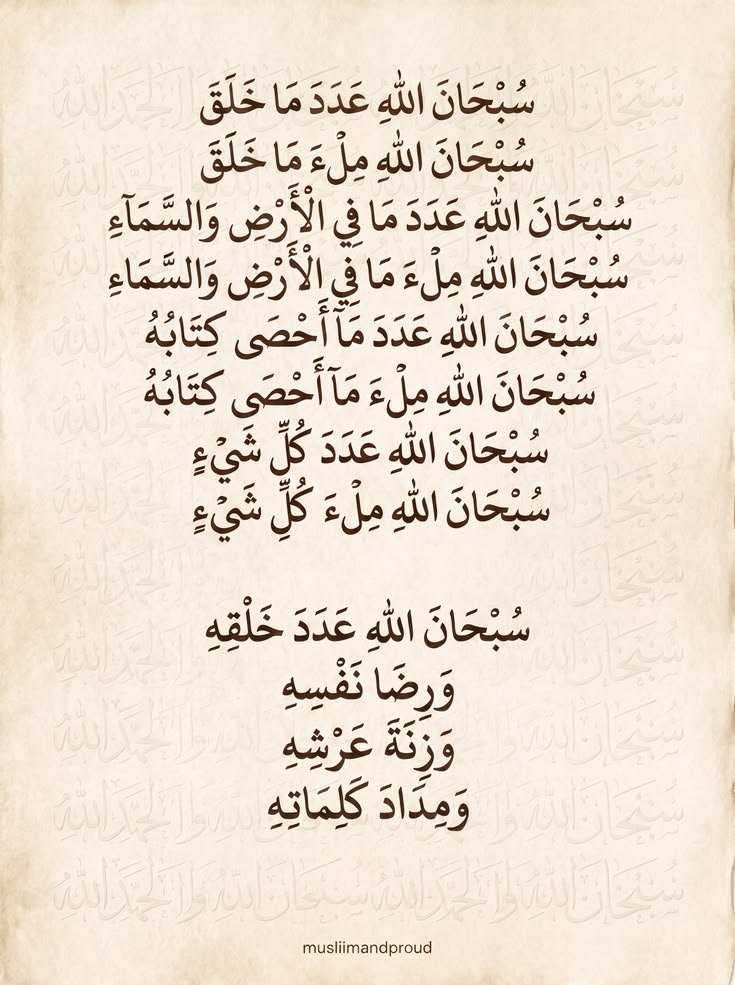 سُبْحَانَ اللهِ عَدَدَ مَا خَلَقَ
سُبْحَانَ اللهِ مِلْءَ مَا خَلَقَ
سُبْحَانَ اللهِ عَدَدَ مَا فِي الْأَرْضِ وَالسَّمَآءِ
سُبْحَانَ اللهِ مِلْءَ مَا فِي الْأَرْضِ وَالسَّمَاءِ
سُبْحَانَ اللهِ عَدَدَ مَآ أَحْصَى كِتَابُهُ
سُبْحَانَ اللهِ مِلْءَ مَآ أَحْصَى كِتَابُهُ
سُبْحَانَ اللهِ عَدَدَ كُلِّ شَيْءٍ
سُبْحَانَ اللهِ مِلْءَ كُلِّ شَيْءٍ
سُبْحَانَ اللهِ عَدَدَ خَلْقِهِ
وَرِضَا نَفْسِهِ
وَزِنَةَ عَرْشِهِ
وَمِدَادَ كَلِمَاتِهِ
musliimandproud